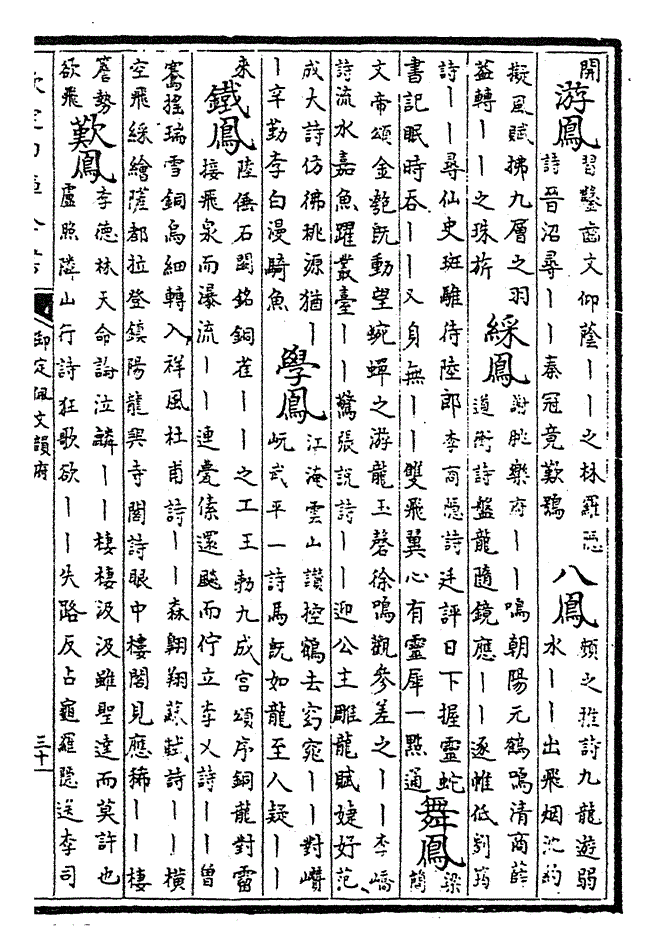 開
游鳳
習鑿齒文仰蔭丨丨之林羅隱
詩晉沼尋丨丨秦冠竟歎鷄
八鳳
顏之推詩九龍遊弱
水丨丨出飛烟沈約
擬風賦拂九層之羽
葢轉丨丨之珠旂
綵鳳
謝朓樂府丨丨鳴朝陽元鶴鳴清商薛
道衡詩盤龍隨鏡應丨丨逐帷低劉筠
詩丨丨尋仙史斑騅待陸郎李商隱詩廷評日下握靈蛇
書記眠時吞丨丨又身無丨丨雙飛翼心有靈犀一點通
舞鳳
梁
簡
文帝頌金匏既動望蜿蟬之游龍玉磬徐鳴觀參差之丨丨李嶠
詩流水嘉魚躍叢臺丨丨驚張說詩丨丨迎公主雕龍賦婕妤范
成大詩仿彿桃源猶丨
丨辛勤李白漫騎魚
學鳳
江淹雲山讚控鶴去窈窕丨丨對巑
岏武平一詩馬既如龍至人疑丨丨
來
鐵鳳
陸倕石闕銘銅雀丨丨之工王勃九成宮頌序銅龍對霤
接飛泉而瀑流丨丨連甍傃還飇而佇立李乂詩丨丨曾
騫搖瑞雪銅烏細轉入祥風杜甫詩丨丨森翺翔蘇軾詩丨丨橫
空飛綵繪薩都拉登鎮陽龍興寺閣詩眼中樓閣見應稀丨丨棲
簷勢
欲飛
歎鳳
李德林天命論泣麟丨丨棲棲汲汲雖聖達而莫許也
盧照隣山行詩狂歌欲丨丨失路反占龜羅隱送李司
欽定四庫全書
御定佩文韻府
三十一